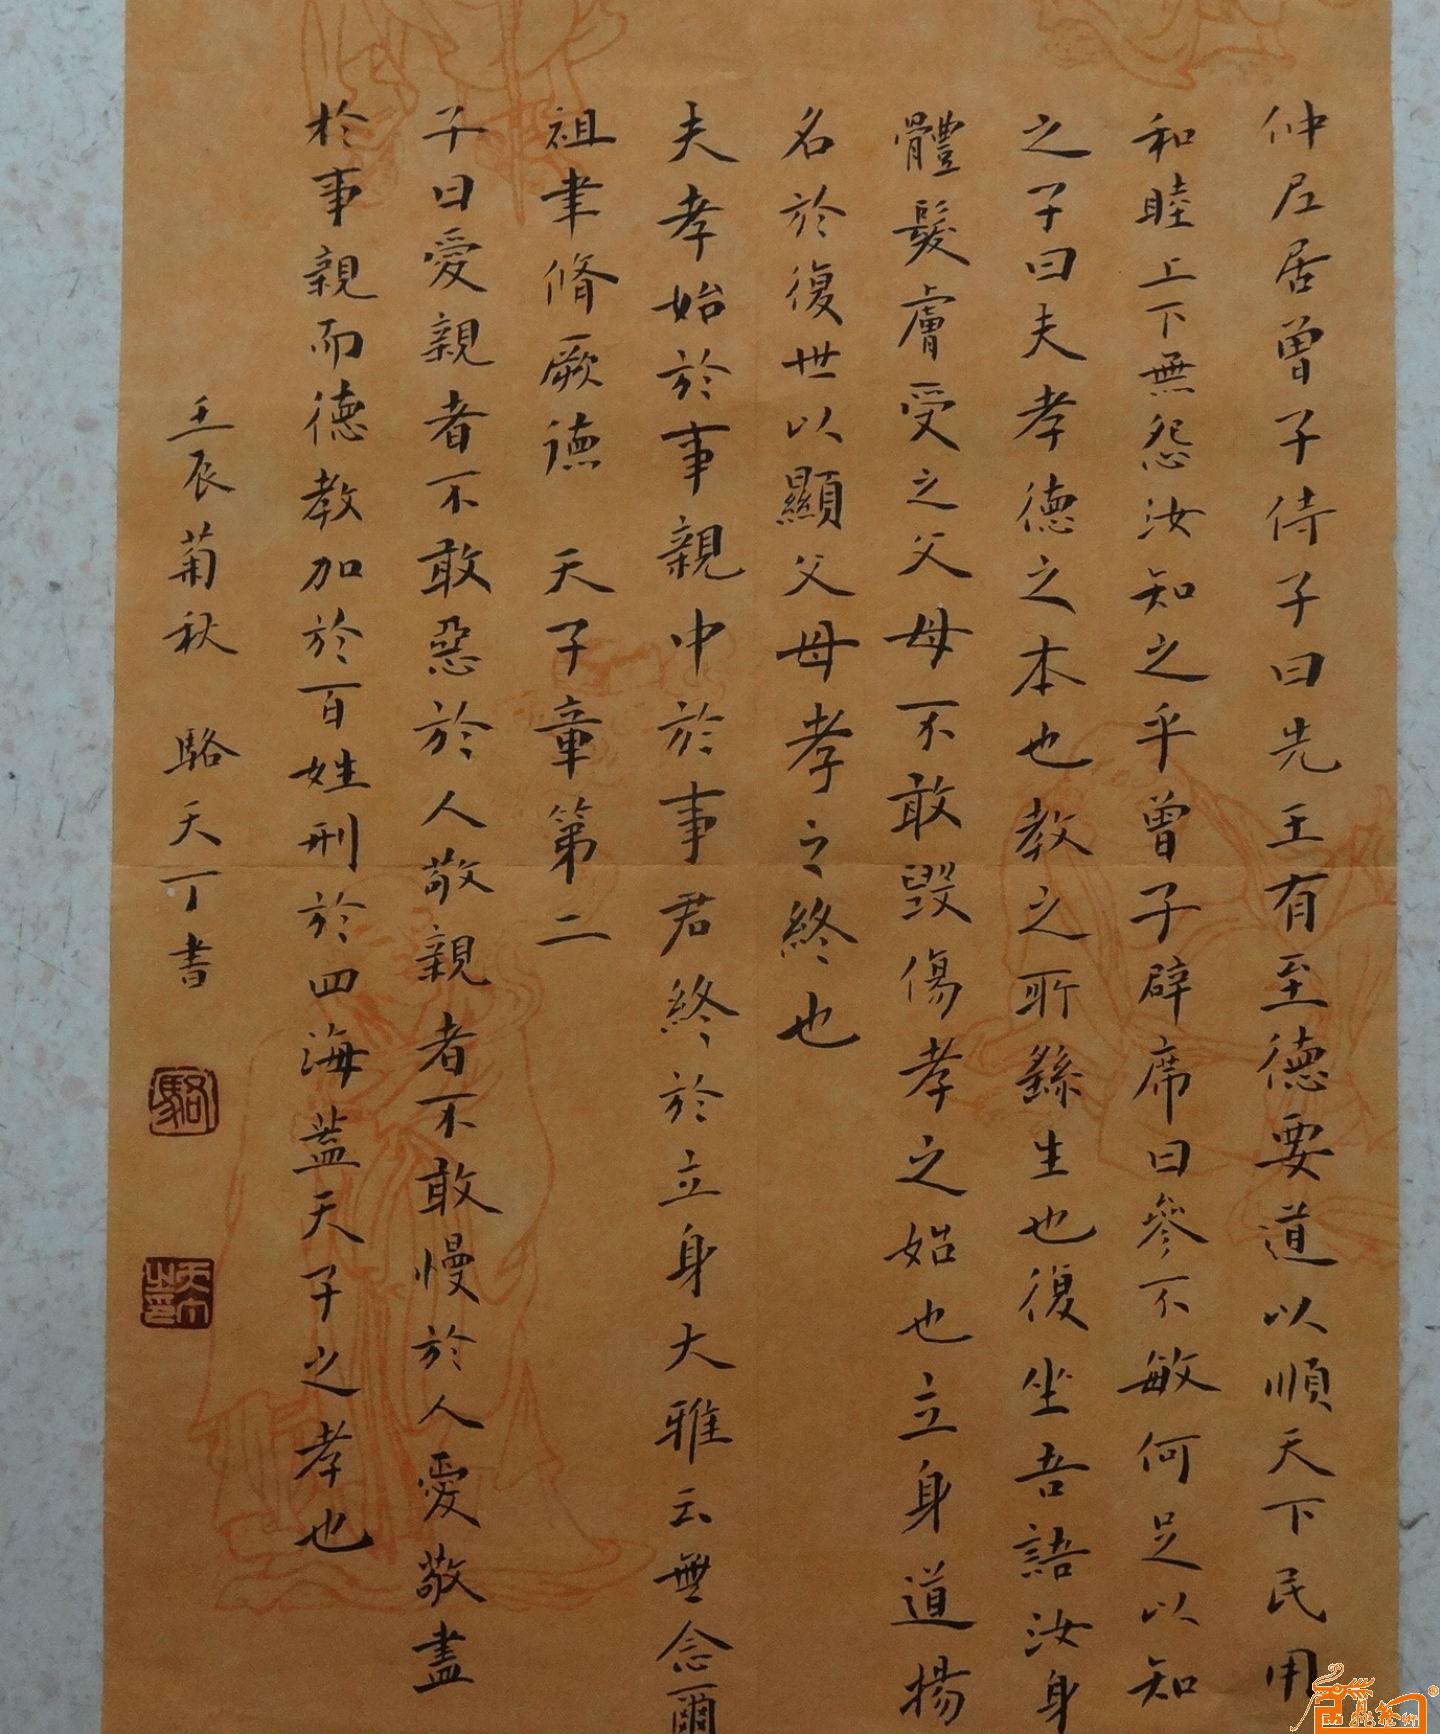 仲尼居曾子侍子曰先王有至德要道以順天下民用
和睦上下無怨汝知之乎曾子辟席曰參不敏何足以知
之子曰夫孝德之本也教之所繇生也復坐吾語汝身
體髮膚受之父母不敢毀傷孝之始也立身道揚
名於復世以顯父母孝之終也
夫孝始於事親中於事君終於立身大雅云無念爾
祖聿脩厥德 天子章第二
子曰愛親者不敢惡於人敬親者不敢慢於人愛敬盡
於事親而德教加於百姓刑於四海蓋天子之孝也
壬辰菊秋 駱天丁書
駱